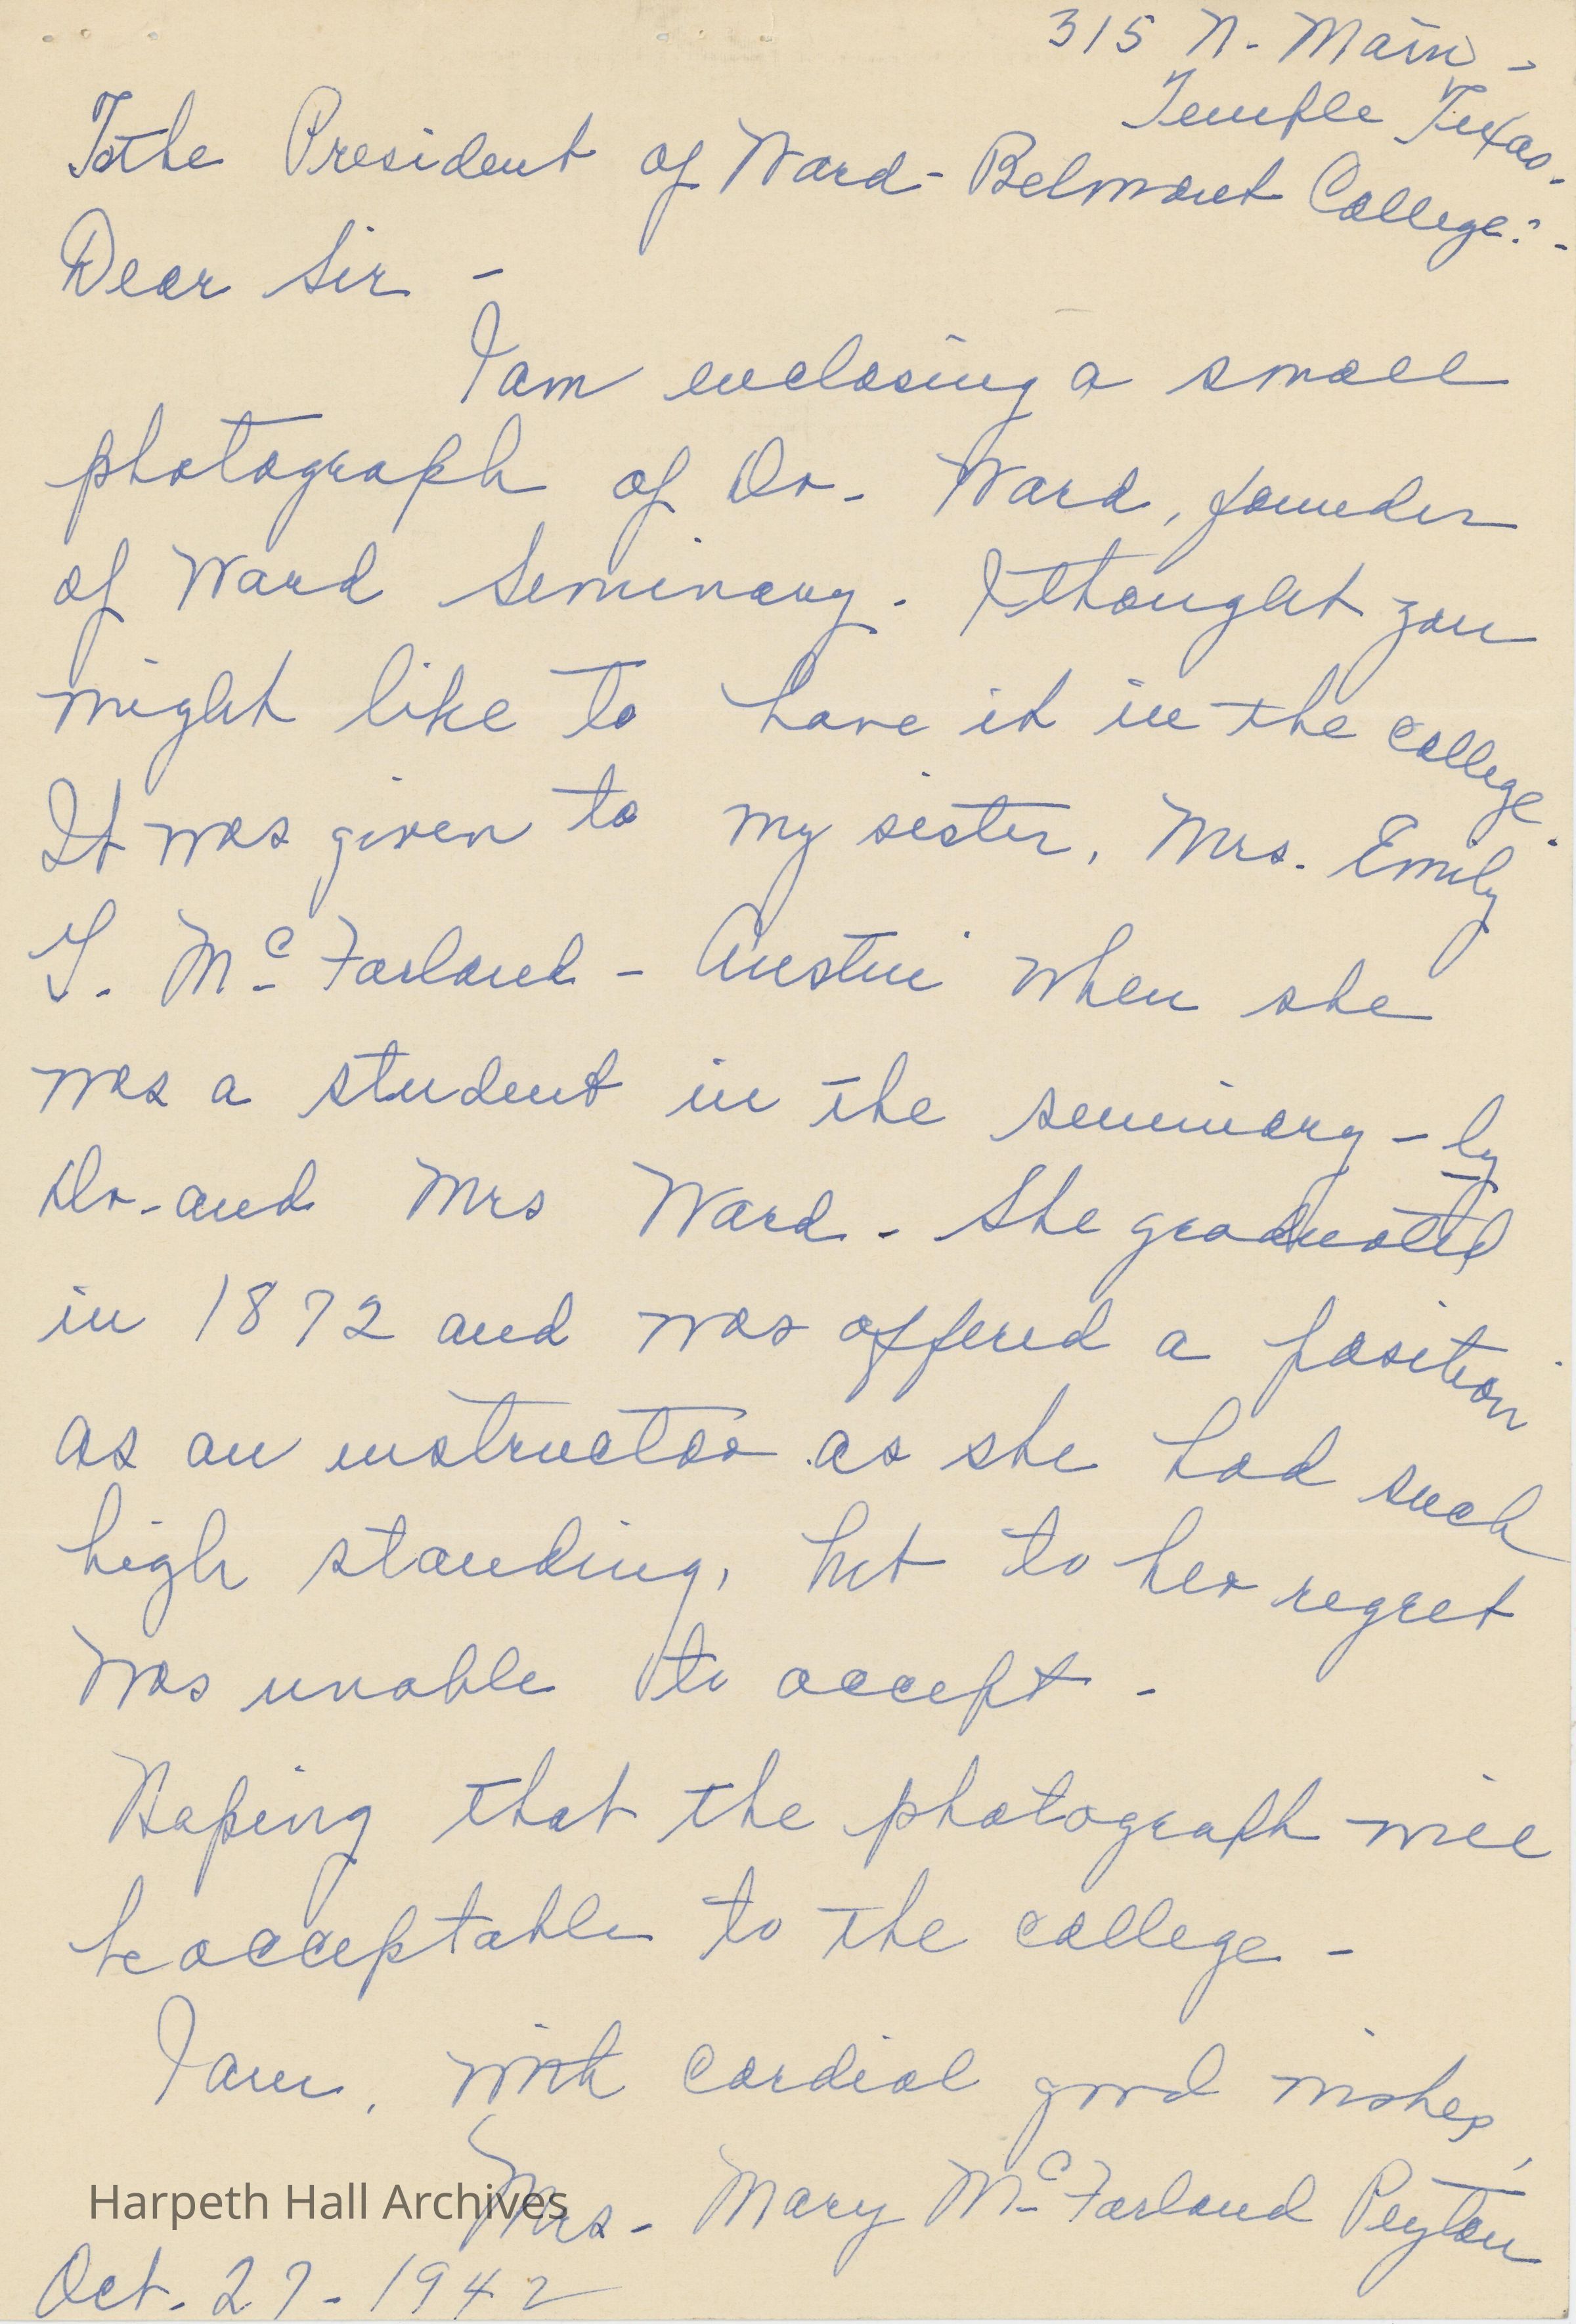 315 N. Main -
Temple Texas -
To the President of Ward-Belmont College: -
Dear Sir -
I am enclosing a small
photograph of Dr. Ward, founder
of Ward Seminary. I thought you
might like to have it in the college.
It was given to my sister, Mrs. Emily
T. McFarland - Austin when she
was a student in the seminary - by
Dr. and Mrs Ward. She graduated
in 1872 and was offered a position
as an instructor as she had such
high standing, but to her regret
was unable to accept -
Hoping that the photograph will
be acceptable to the college -
I am, with cordial good wishes,
Mrs. Mary McFarland Peyton
Harpeth Hall Archives
Oct. 27 - 1942